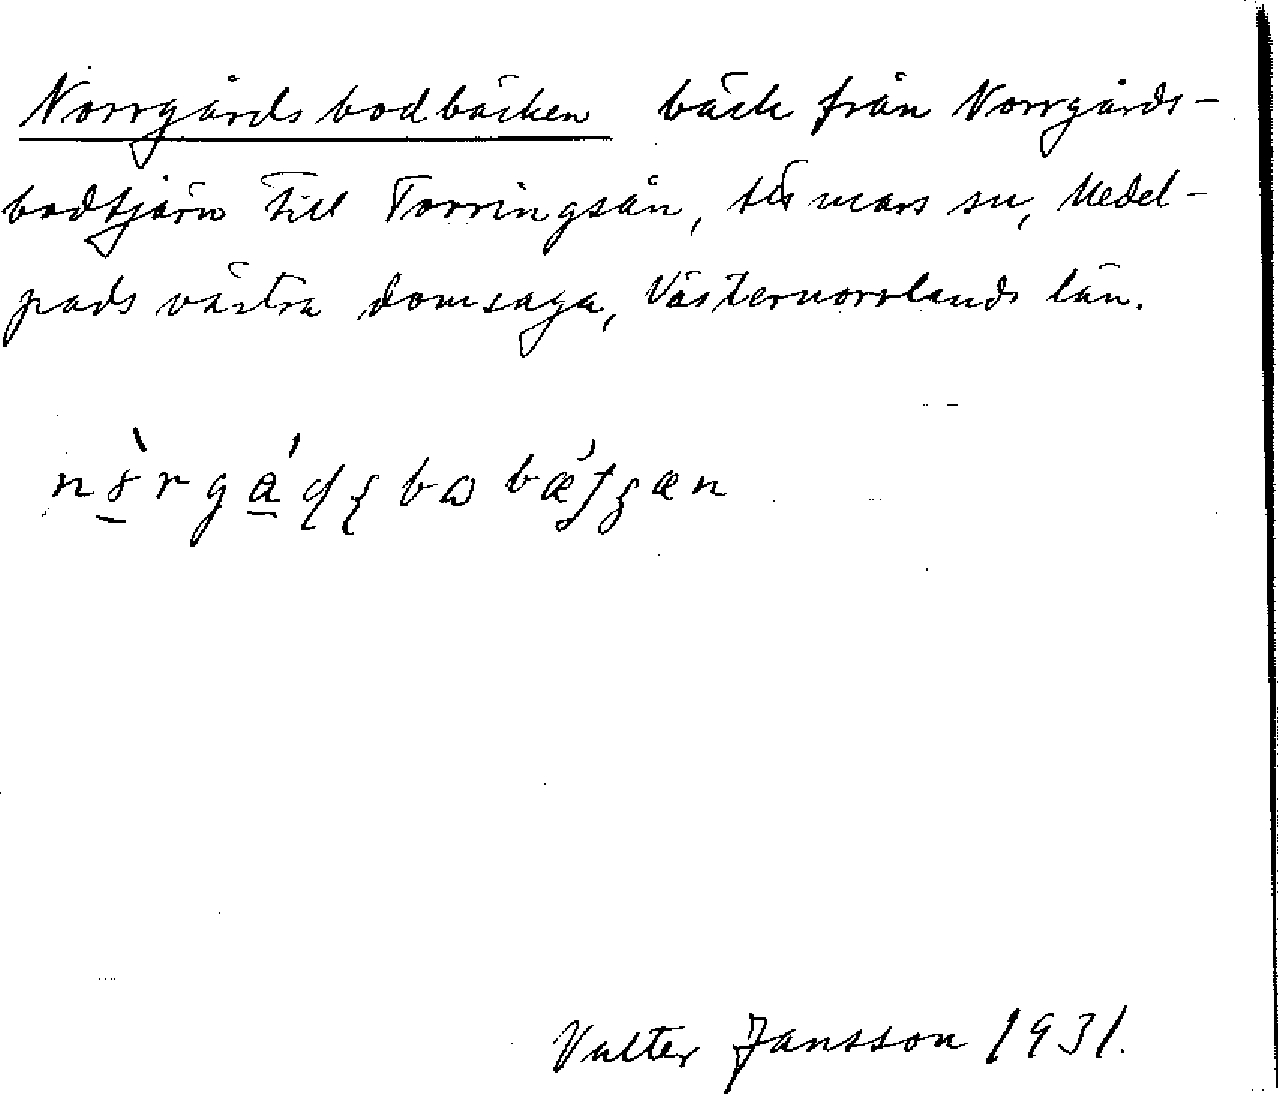 Norrgårdsbodbäcken bäck från Norrgårds-
bodtjärn till Torringsån, sn, Medel-
pads västra domsaga, Västernorrlands län.
Valter Jansson 1931.